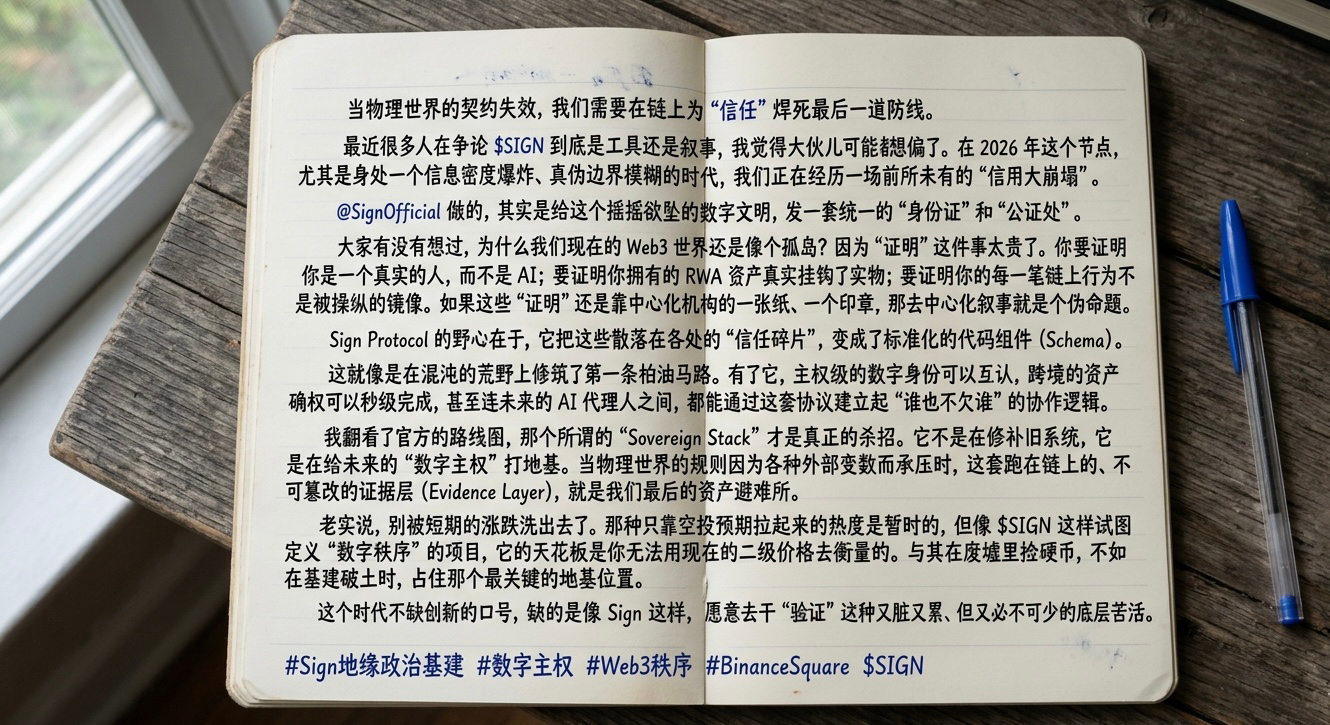 当物理世界的契约失效，我们需要在链上为“信任”焊死最后一道防线。
最近很多人在争论 $SIGN 到底是工具还是叙事，我觉得大伙儿可能都想偏了。在 2026 年这个节点，
尤其是身处一个信息密度爆炸、真伪边界模糊的时代，我们正在经历一场前所未有的“信用大崩塌”。
@SignOfficial 做的，其实是给这个摇摇欲坠的数字文明，发一套统一的“身份证”和“公证处”。
大家有没有想过，为什么我们现在的 Web3 世界还是像个孤岛？因为“证明”这件事太贵了。你要证明
你是一个真实的人，而不是 AI；要证明你拥有的 RWA 资产真实挂钩了实物；要证明你的每一笔链上行为不
是被操纵的镜像。如果这些“证明”还是靠中心化机构的一张纸、一个印章，那去中心化叙事就是个伪命题。
Sign Protocol 的野心在于，它把这些散落在各处的“信任碎片”，变成了标准化的代码组件（Schema）。
这就像是在混沌的荒野上修筑了第一条柏油马路。有了它，主权级的数字身份可以互认，跨境的资产
确权可以秒级完成，甚至连未来的 AI 代理人之间，都能通过这套协议建立起“谁也不欠谁”的协作逻辑。
我翻看了官方的路线图，那个所谓的“Sovereign Stack”才是真正的杀招。它不是在修补旧系统，它
是在给未来的“数字主权”打地基。当物理世界的规则因为各种外部变数而承压时，这套跑在链上的、不
可篡改的证据层（Evidence Layer），就是我们最后的资产避难所。
老实说，别被短期的涨跌洗出去了。那种只靠空投预期拉起来的热度是暂时的，但像 $SIGN 这样试图
定义“数字秩序”的项目，它的天花板是你无法用现在的二级价格去衡量的。与其在废墟里捡硬币，不如
在基建破土时，占住那个最关键的地基位置。
这个时代不缺创新的口号，缺的是像 Sign 这样，愿意去干“验证”这种又脏又累、但又必不可少的底层苦活。
#Sign地缘政治基建 #数字主权 #Web3秩序 #BinanceSquare $SIGN